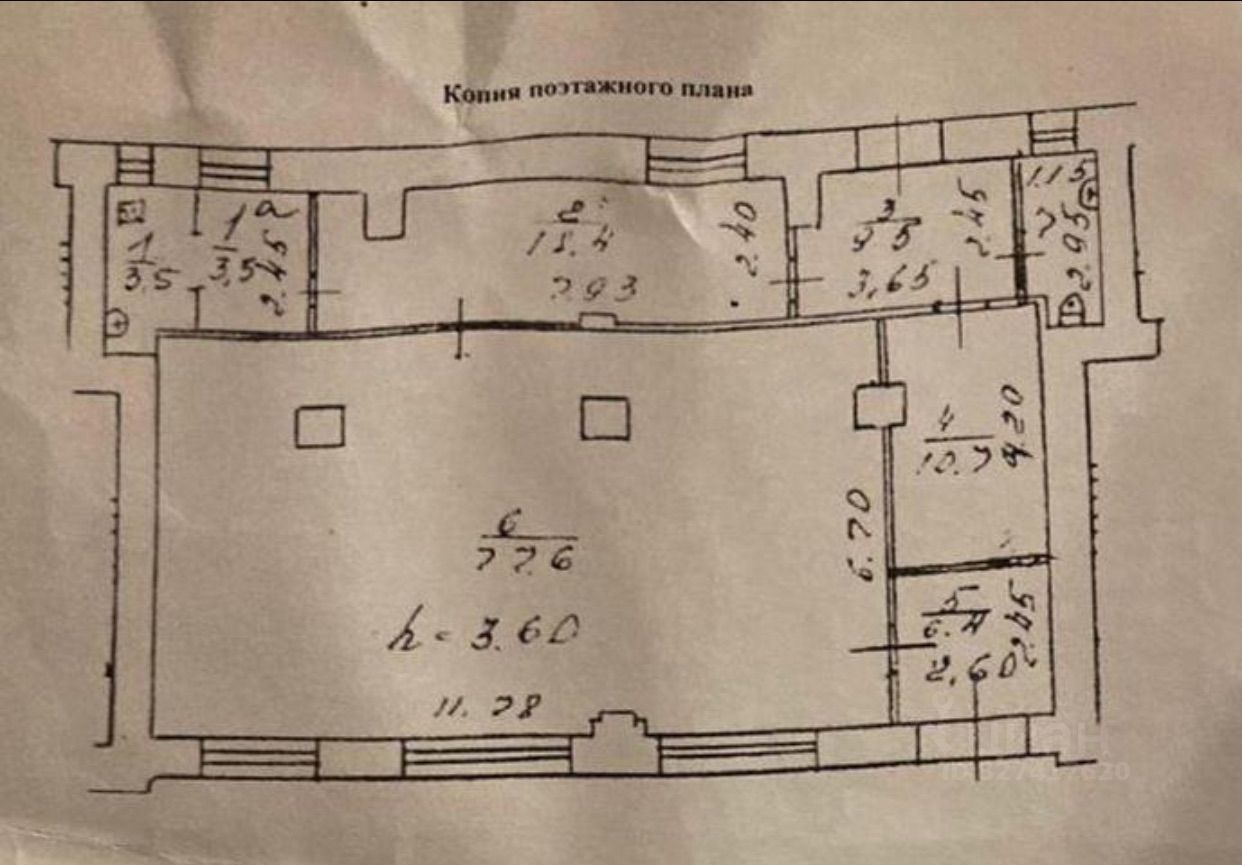 Копия поэтажного плана
1
3.5
1а
3,5
2.45
2
18.4
7.93
2.40
3
9 5
3,65
2.45
1.15
7
2.95
4
10.7
4.20
6
77.6
h = 3.60
11.78
6.70
5
6.4
2.60
2.45
циан